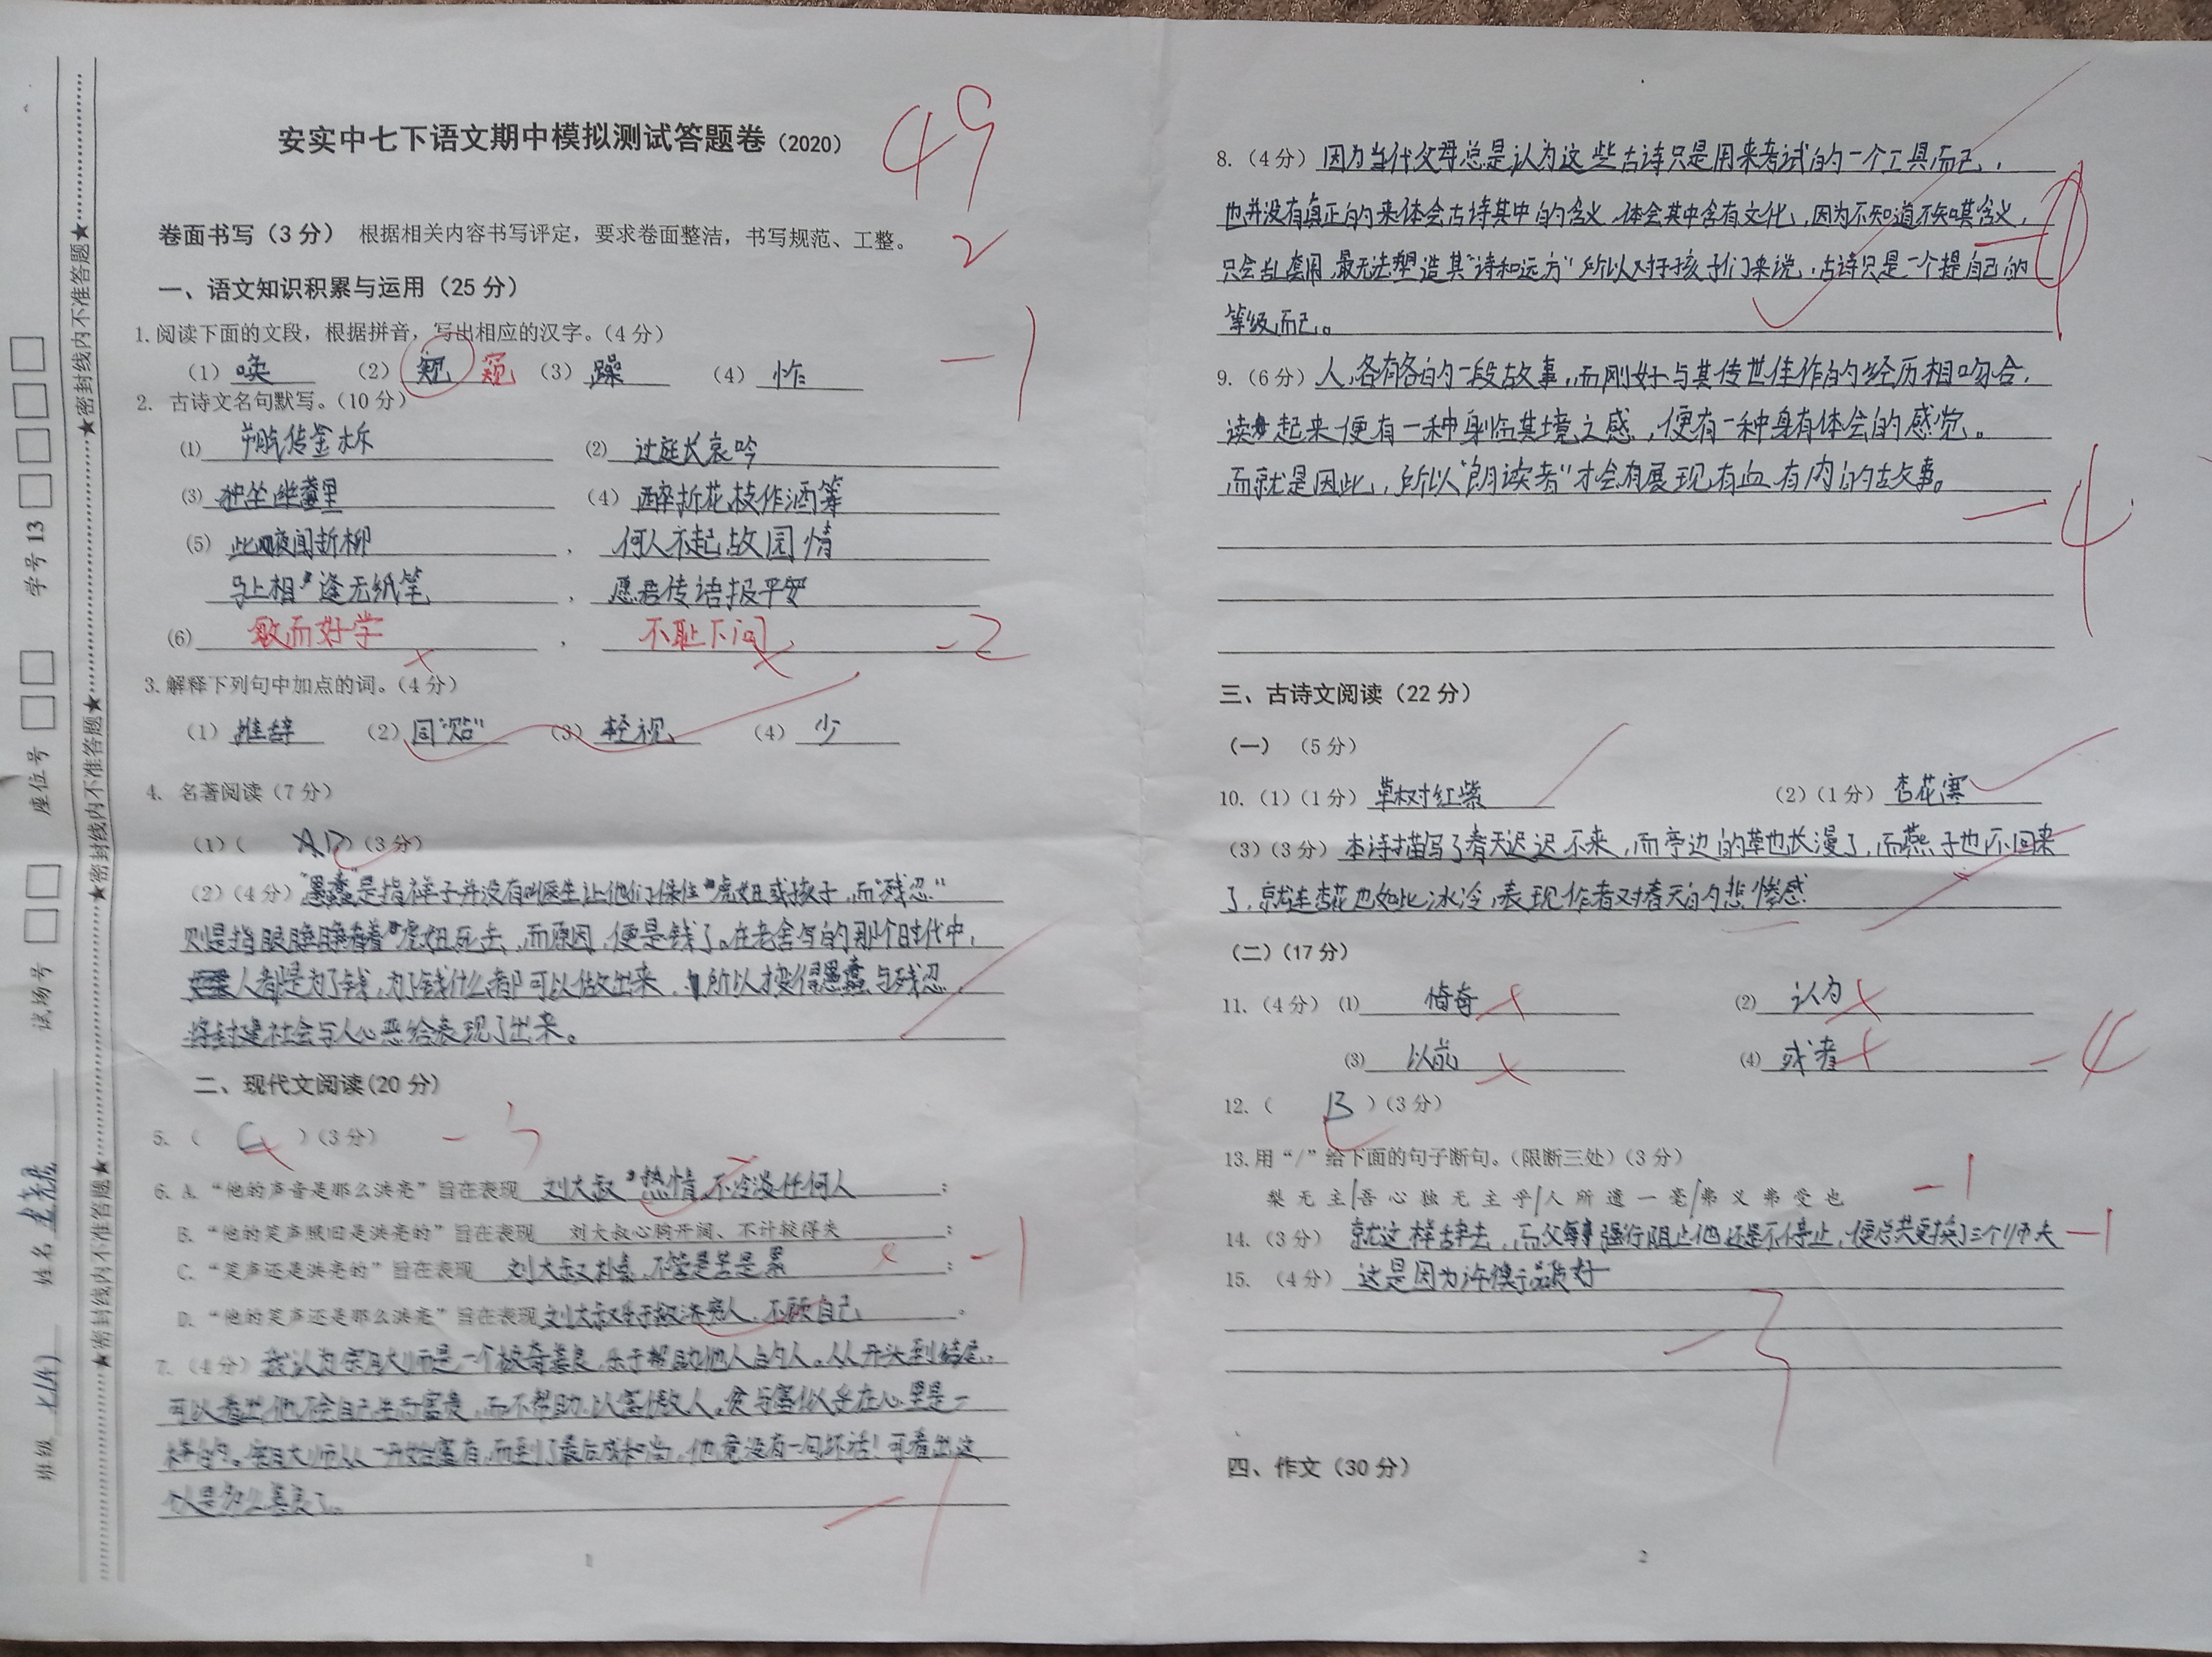 安实中七下语文期中模拟测试答题卷（2020）
49
卷面书写（3分） 根据相关内容书写评定，要求卷面整洁，书写规范、工整。
2
一、语文知识积累与运用（25分）
1.阅读下面的文段，根据拼音，写出相应的汉字。（4分）
-1
（1）唤 （2） 窥 （3）躁 （4）怍
2. 古诗文名句默写。（10分）
（1）朔气传金柝 （2）过庭长哀吟
（3）独坐幽篁里 （4）醉折花枝作酒筹
（5）此夜闻折柳 ， 何人不起故园情
马上相逢无纸笔 ， 愿君传语报平安
（6）敏而好学 ， 不耻下问 -2
3.解释下列句中加点的词。（4分）
（1）推辞 （2）同“贴” （3）轻视 （4）少
4. 名著阅读（7分）
（1）（ AD ）（3分）
（2）（4分）“愚蠢”是指祥子并没有叫医生让他们保住虎妞或孩子，而“残忍”
则是指眼睁睁看着虎妞死去，而原因，便是钱了。在老舍写的那个时代中，
人都是为了钱，为了钱什么都可以做出来，所以才变得愚蠢与残忍，
将封建社会与人心恶给表现了出来。
二、现代文阅读（20分）
5.（ C ）（3分） -3
6. A. “他的声音是那么洪亮”旨在表现 刘大叔热情，不冷淡任何人 ；
B. “他的笑声照旧是洪亮的”旨在表现 刘大叔心胸开阔、不计较得失 ；
C. “笑声还是洪亮的”旨在表现 刘大叔朴素，不管是苦是累 ； -1
D. “他的笑声还是那么洪亮”旨在表现 刘大叔乐于救济穷人，不顾自己 。
7.（4分）我认为宗月大师是一个极奇善良，乐于帮助他人的人。从开头到结尾，
可以看出他不会自己生而富贵，而不帮助，以富傲人。贫与富似乎在心里是一
样的。宗月大师从一开始富有，而到了最后成和尚，他竟没有一句坏话！可看出这
个人是多么善良了。
-1
1
8.（4分）因为当代父母总是认为这些古诗只是用来考试的一个工具而已，
也并没有真正的来体会古诗其中的含义，体会其中含有文化，因为不知道不知其含义，
只会乱套用，最无法塑造其“诗和远方”所以对于孩子们来说，古诗只是一个提自己的
等级而已。
9.（6分）人，各有各的一段故事，而刚好与其传世佳作的经历相吻合，
读起来便有一种身临其境之感，便有一种身有体会的感觉。
而就是因此，所以“朗读者”才会有展现有血有肉的故事。
-4
三、古诗文阅读（22分）
（一）（5分）
10.（1）（1分）草树红紫 （2）（1分）杏花寒
（3）（3分）本诗描写了春天迟迟不来，而亭边的草也长漫了，而燕子也不回来
了，就连杏花也如此冰冷，表现作者对春天的悲惨感
（二）（17分）
11.（4分）（1） 倚奇 （2） 认为
（3） 以前 （4） 或者 -4
12.（ B ）（3分）
13.用“/”给下面的句子断句。（限断三处）（3分）
梨无主/吾心独无主乎/人所遗一毫/弗义弗受也 -1
14.（3分）就这样辞去，而父母事强行阻止他还是不停止，便总共更换了三个师夫 -1
15.（4分）这是因为许衡品质好
-3
四、作文（30分）
2
★密封线内不准答题★ ★密封线内不准答题★ ★密封线内不准答题★
班级 姓名 试场号 座位号 学号 13